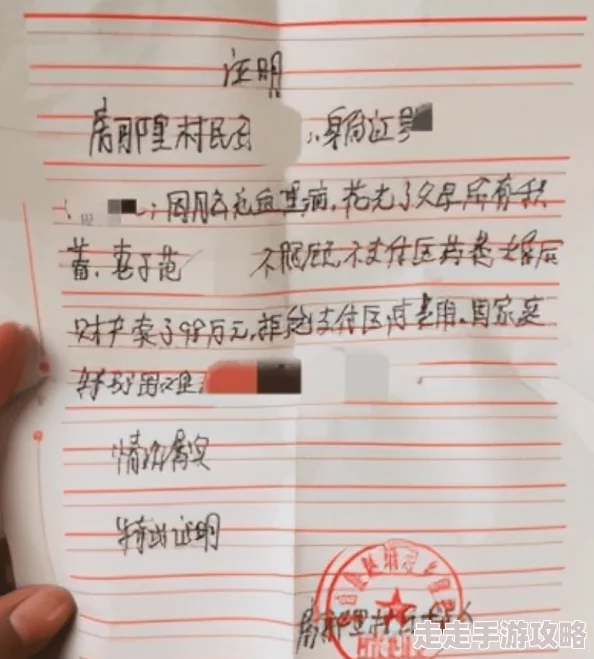 证明
房那里村民 身份证号
因脑充血重病,花光了父母所有积
蓄,妻子范 不照顾不支付医药费婚后
财产卖了98万元,拒绝支付医疗费用,因家庭
特别困难
情况属实
特此证明
房那里村
走走手游攻略